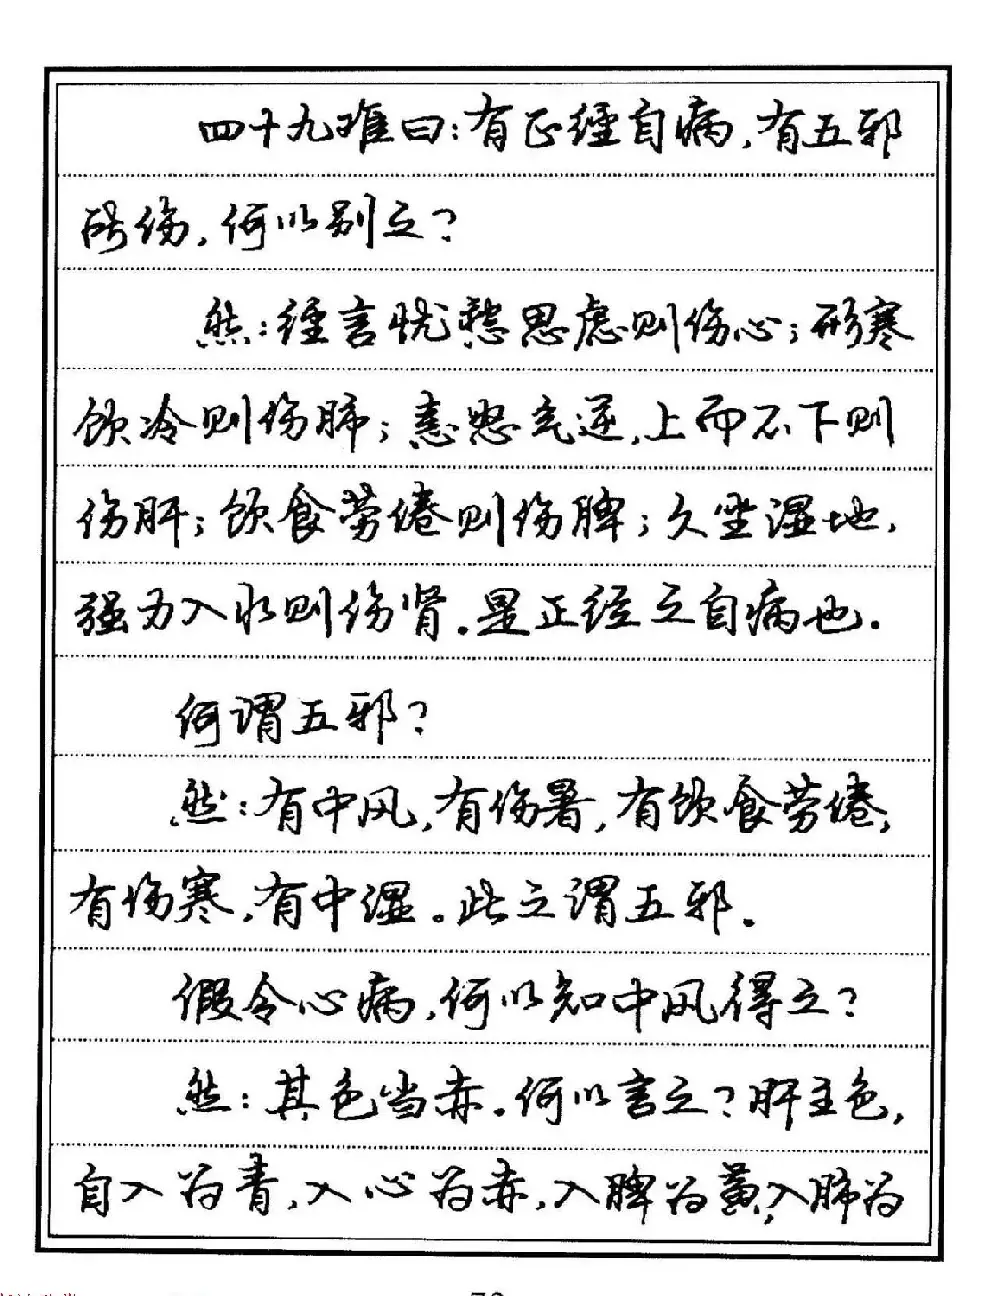 四十九难曰:有正经自病,有五邪
所伤,何以别之?
然:经言忧愁思虑则伤心;形寒
饮冷则伤肺;恚怒气逆,上而不下则
伤肝;饮食劳倦则伤脾;久坐湿地,
强力入水则伤肾。是正经之自病也。
何谓五邪?
然:有中风,有伤暑,有饮食劳倦,
有伤寒,有中湿。此之谓五邪。
假令心病,何以知中风得之?
然:其色当赤。何以言之?肝主色,
自入为青,入心为赤,入脾为黄,入肺为